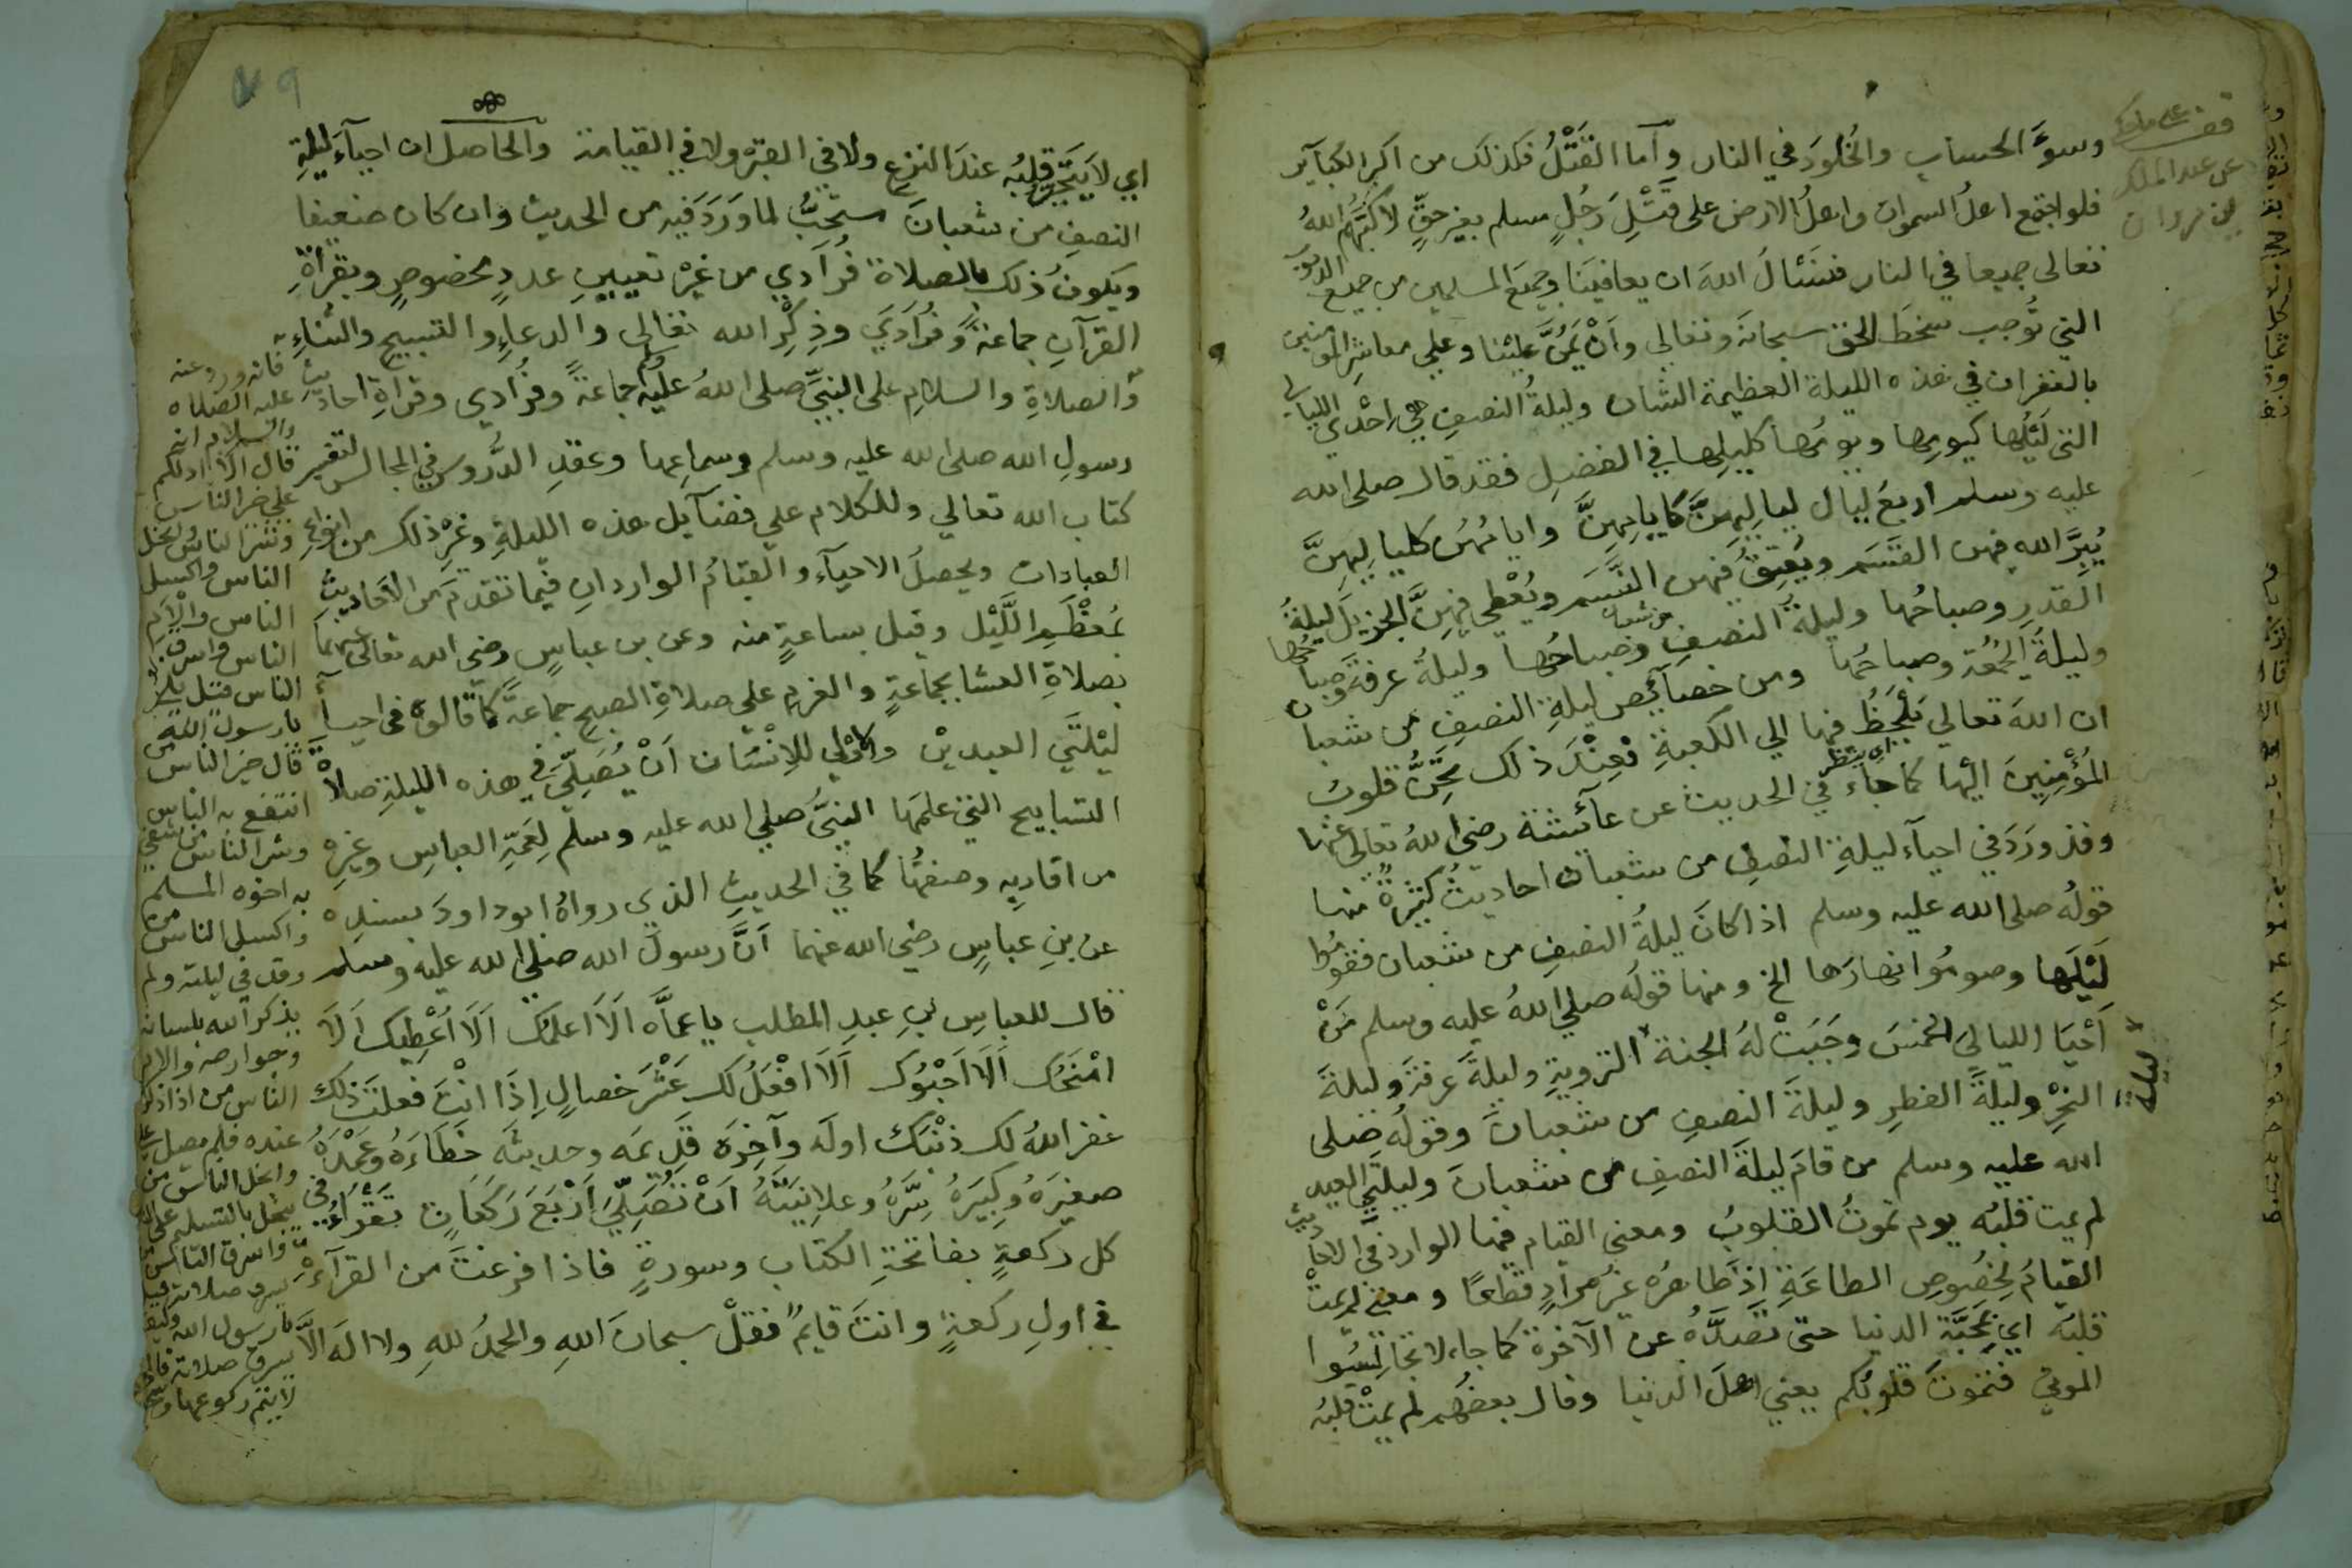 وسوءَ الحساب والخلودَ في النار وأما القَتْلُ فكذلك من اكبر الكبآير
فلو اجتمع اهلُ السموات واهلُ الارض على قَتْلِ رَجُلٍ مسلم بغير حقٍّ لاكبَّهُم اللهُ
تعالى جميعا في النار فنسَئالُ اللهَ ان يعافيَنا وجميعَ المسلمين من جميع الذنوب
التي تُوجب سخطَ الحق سبحانه وتعالي وأنْ يَمُنَّ علينا وعلي معاشِرِ المومنين
بالغفران في هذه الليلة العظيمة الشان وليلةُ النصفِ هي احْدَي الليالي
التي لَيْلُها كيومِها ويومُها كليلِها في الفضلِ فقد قال صلى الله
عليه وسلم اربعُ ليال لياليهنَّ كايامِهنَّ وايامُهن كلياليهنَّ
يُبِرَّ الله فيهن القسَم ويُعتِقُ فيهن النَّسَم ويُعْطِي فيهنَّ الجزيلَ ليلةُ
القدرِ وصباحُها وليلةُ النصفِ من شعبان وصباحُها وليلةُ عرفةَ وصباحُها
وليلةُ الجُمُعة وصباحُها ومن خصآئِص ليلةِ النصفِ من شعبان
ان اللهَ تعالي يَلْحَظُ اي ينظر فيها الي الكعبةِ فعِنْدَ ذلك تحِنُّ قلوبُ
المُؤْمِنِينَ اليْها كما جاء في الحديث عن عآئِشة رضي اللهُ تعالى عنها
وقد وَرَدَ في احيآء ليلةِ النصفِ من شعبان احاديثُ كثيرةٌ منها
قولُه صلى الله عليه وسلم اذا كانَ ليلةُ النصفِ من شعبان فقوموا
لَيْلَها وصومُوا نهارَها الخ ومنها قولُه صلي اللهُ عليه وسلم مَنْ
أحْيَا اللياليَ الخمسَ وَجَبَتْ لهُ الجنة التروية وليلةَ عرفةَ وليلةَ
ليلة
النَحْرِ وليلةَ الفطرِ وليلةَ النصفِ من شعبانَ وقولُه صلى
الله عليه وسلم من قامَ ليلةَ النصفِ من شعبانَ وليلتَي العيد
لم يمت قلبُه يوم تموتُ القلوبُ ومعنى القيام فيها الوارد في الاحاديث
القيامُ لِخُصُوصِ الطاعَةِ اذ ظاهرُه غيرُ مرادٍ قطعًا ومعنى لم يمتْ
قلبُه اي بمَحَبَّة الدنيا حتى تَصُدَّهُ عن الآخرة كما جاء لا تجالِسُوا
الموتي فتموتَ قلوبُكم يعني اهلَ الدنيا وقال بعضُهم لم يمتْ قلبُه
قف على
عن عبد الملك
بن مروان
٩
اي لا يَتَحَيَّرُ قلبُه عندَ النزعِ ولا في القبر ولا في القيامة والحاصل ان احيآءَ ليلةِ
النصفِ من شعبانَ مستحبُّ لما وَرَدَ فيه من الحديث وان كان ضعيفا
ويكونُ ذلك بالصلاة فُرَادَي من غيرْ تعيينِ عددٍ مخصوصٍ وبقرأةِ
القرآنِ جماعةً وفُرَادَيَ وذِكْرِ الله تعالى والدعاءِ والتسبيحِ والثناءِ
والصلاةِ والسلامِ على النبيِّ صلى اللهُ عليه وسلم جماعةً وفُرَادى وقراةِ احاديثِ
رسولِ الله صلى الله عليه وسلم وسماعِها وعقدِ الدُّروسِ في المجالس لتفسير
كتاب الله تعالي وللكلام علي فضآيل هذه الليلةِ وغيْرِ ذلك من انواع
العبادات ويحصلُ الاحيآءُ والقيامُ الواردانِ فيما تقدم من الاحاديثِ
بمُعْظَمِ اللَّيْل وقيل بساعةٍ منه وعن بن عباسٍ رضي الله تعالى عنهما
بصلاةِ العشا بجماعةٍ والعزمِ علي صلاةِ الصبحِ جماعةً كما قالوه في احيآ
ليْلتَي العيديْن والاولي للاِنْسَان اَنْ يُصَلِّيَ في هذه الليلةِ صلاةَ
التسابيح التي علمَها النبيُّ صلي الله عليه وسلم لِعَمِّه العباسِ وغيرِه
من اقاربِه وصفتُها كما في الحديثِ الذي رواهُ ابو داودَ بسندِه
عن بنِ عباسٍ رضي الله عنهما أنَّ رسولَ الله صلي الله عليه وسلم
قال للعباسِ بنِ عبدِ المطلب ياعماَّه اَلَا اعلمُك اَلَا اُعْطِيك اَلَا
امْنَحُك اَلا اَحْبُوك اَلَا افْعَلُ لك عَشْرَ خصالٍ إِذَا انْتَ فعلتَ ذلك
غفر اللهُ لك ذنْبَك اولَه وآخِرَه قَدِيمَه وحديثَه خَطَاءَهُ وعَمْدَهُ
صغيرَهُ وكبيرَهُ سِرَّهُ وعلانيتَهُ اَنْ تُصَلِّيَ اَرْبَعَ رَكَعَاتٍ تَقْرَاءُ في
كل ركعةٍ بفاتحةِ الكتاب وسورةٍ فاذا فرغتَ من القرآءَةِ
في اولِ ركعةٍ وانتَ قايمٌ فقلْ سبحانَ اللهِ والحمدُ للهِ ولا الهَ الاَّ
فانه ورد عنه
عليه الصلاه
والسلام انه
قال الا ادلكم
على خير الناس
وشر الناس وابخل
الناس واكسل
الناس والام
الناس واسرق
الناس قيل بلى
يارسول الله
قال خير الناس من
انتفع به الناس
وشر الناس من
به اخوه المسلم
واكسل الناس من
رقد في ليلته ولم
يذكر الله بلسانه
وجوارحه والام
الناس من اذا ذكرت
عنده فلم يصل علي
وابخل الناس من
يبخل بالتسليم على
واسرق الناس من
يسرق صلاته قيل
يارسول الله وكيف
يسرق صلاته قال
لا يتم ركوعها